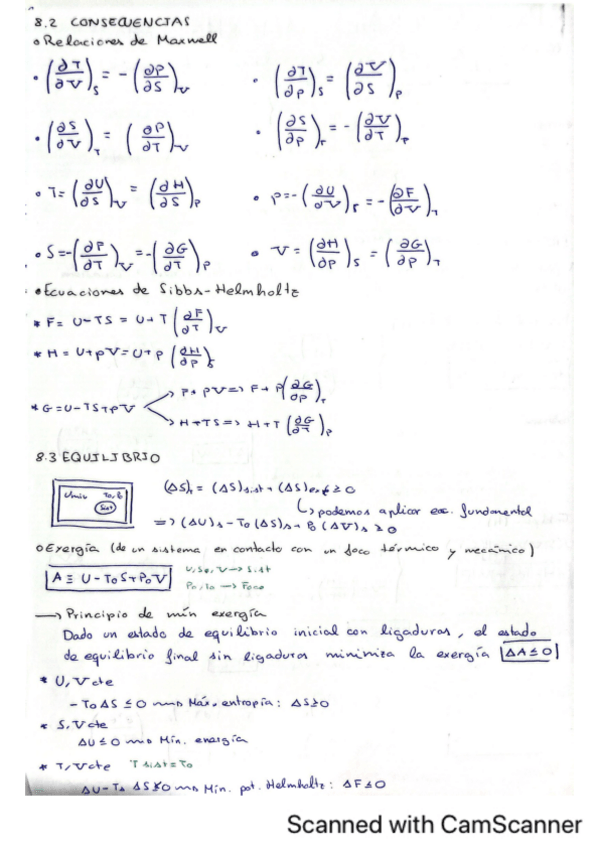 8.2 CONSECUENCIAS
o Relaciones de Maxwell
• (∂T/∂V)_S = - (∂P/∂S)_V   • (∂T/∂p)_S = (∂V/∂S)_p
• (∂S/∂V)_T = (∂P/∂T)_V   • (∂S/∂p)_T = - (∂V/∂T)_p
• T = (∂U/∂S)_V = (∂H/∂S)_p   • p = - (∂U/∂V)_T = - (∂F/∂V)_T
• S = - (∂P/∂T)_V = - (∂G/∂T)_p   • V = (∂H/∂p)_S = (∂G/∂p)_T
• Ecuaciones de Gibbs-Helmholtz
* F = U - TS = U + T (∂F/∂T)_V
* H = U + pV = U + p (∂H/∂p)_S
F + pV => F + p (∂G/∂p)_T
* G = U - TS + pV
H + TS => H + T (∂G/∂T)_p
8.3 EQUILIBRIO
Univ To, Po
Sist
(ΔS)_T = (ΔS)sist + (ΔS)ext ≥ 0
↳ podemos aplicar ec. fundamental
=> (ΔU)s - To (ΔS)s + Po (ΔV)s ≥ 0
o Exergía (de un sistema en contacto con un foco térmico y mecánico)
A ≡ U - ToS + PoV
U, S, V → Sist
Po, To → Foco
→ Principio de mín exergía
Dado un estado de equilibrio inicial con ligaduras, el estado
de equilibrio final sin ligaduras minimiza la exergía ΔA ≤ 0
* U, V cte
- To ΔS ≤ 0 → Máx. entropía: ΔS ≥ 0
* S, V cte
ΔU ≤ 0 → Mín. energía
* T, V cte T sist = To
ΔU - To ΔS ≤ 0 → Mín. pot. Helmholtz: ΔF ≤ 0
Scanned with CamScanner